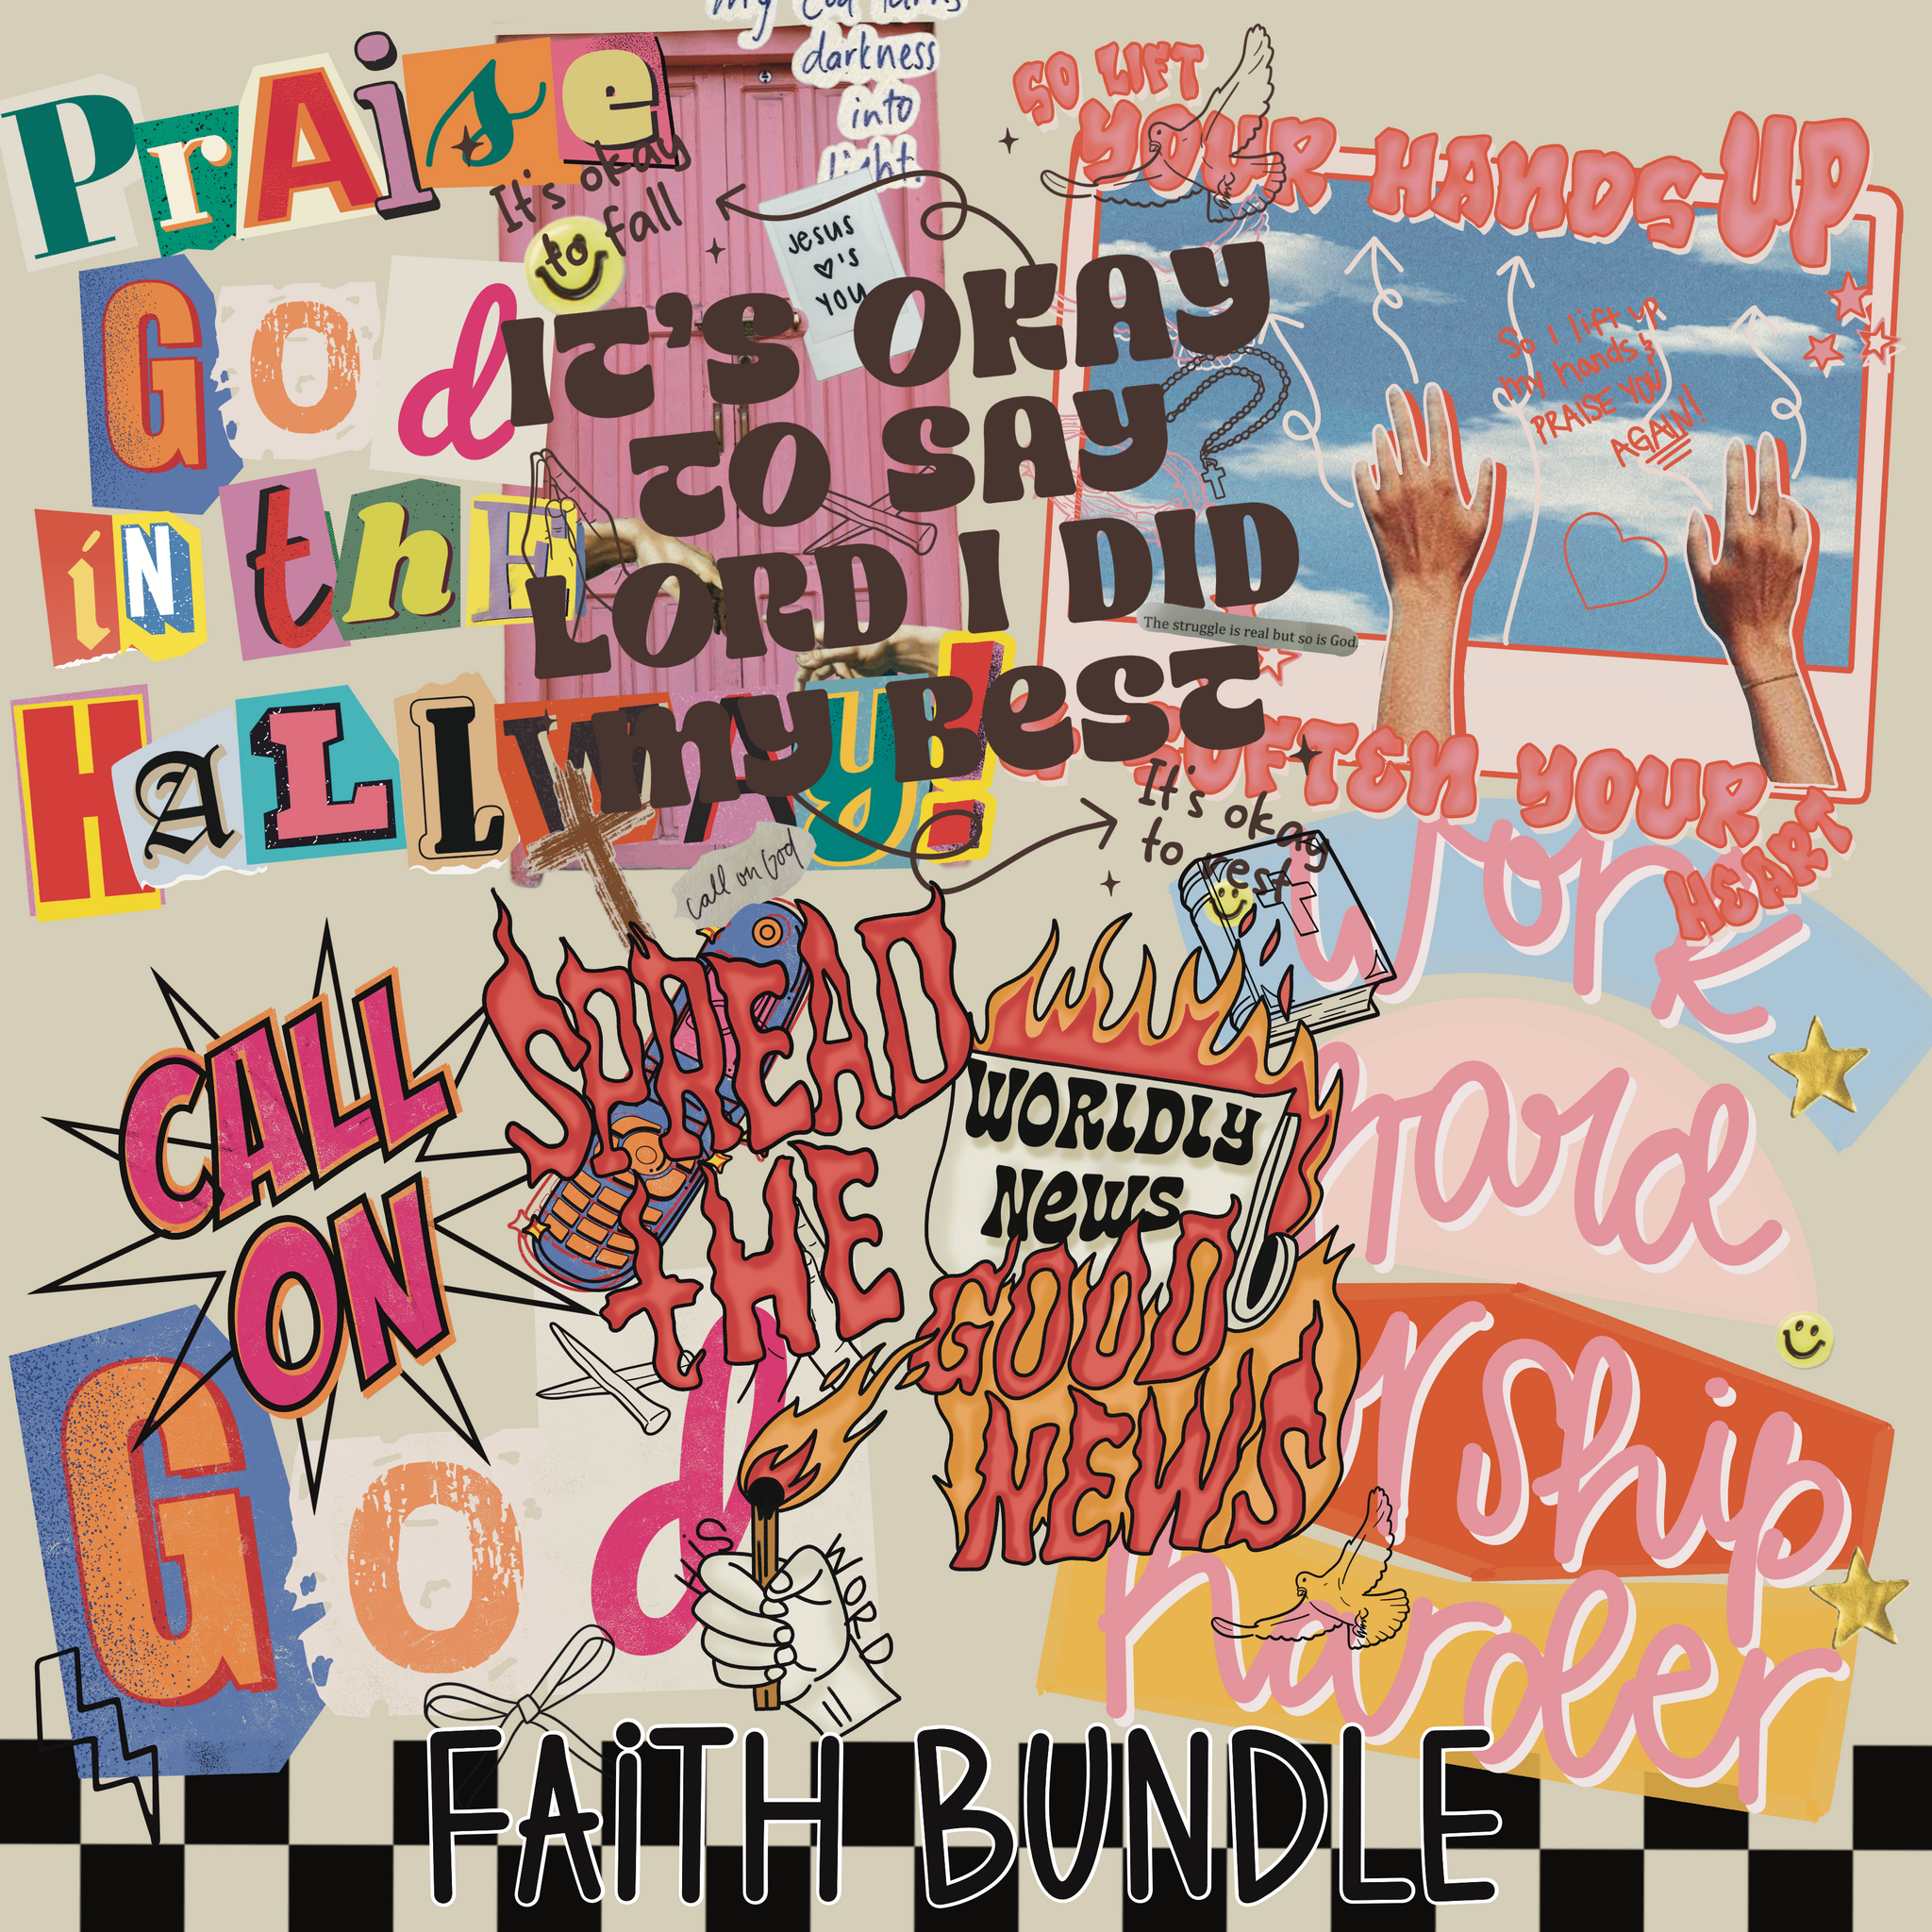 PrAise
God
iN thE
HALLWAY!
my God turns
darkness
into
light.
Jesus
♡'s
YOU
It's okay
to fall
IT'S OKAY
TO SAY
LORD I DID
my BesT
The struggle is real but so is God.
It's okay
to rest
call on God
SO LIFT
YOUR HANDS UP
So I lift up
my hands &
PRAISE YOU
AGAIN!
SOFTEN YOUR
HEART
CALL
ON
God
SPREAD
tHE
WORLDLY
News
GOOD
NEWS
HIS
WORD
work
hard
worship
harder
FAiTH BUNDLE